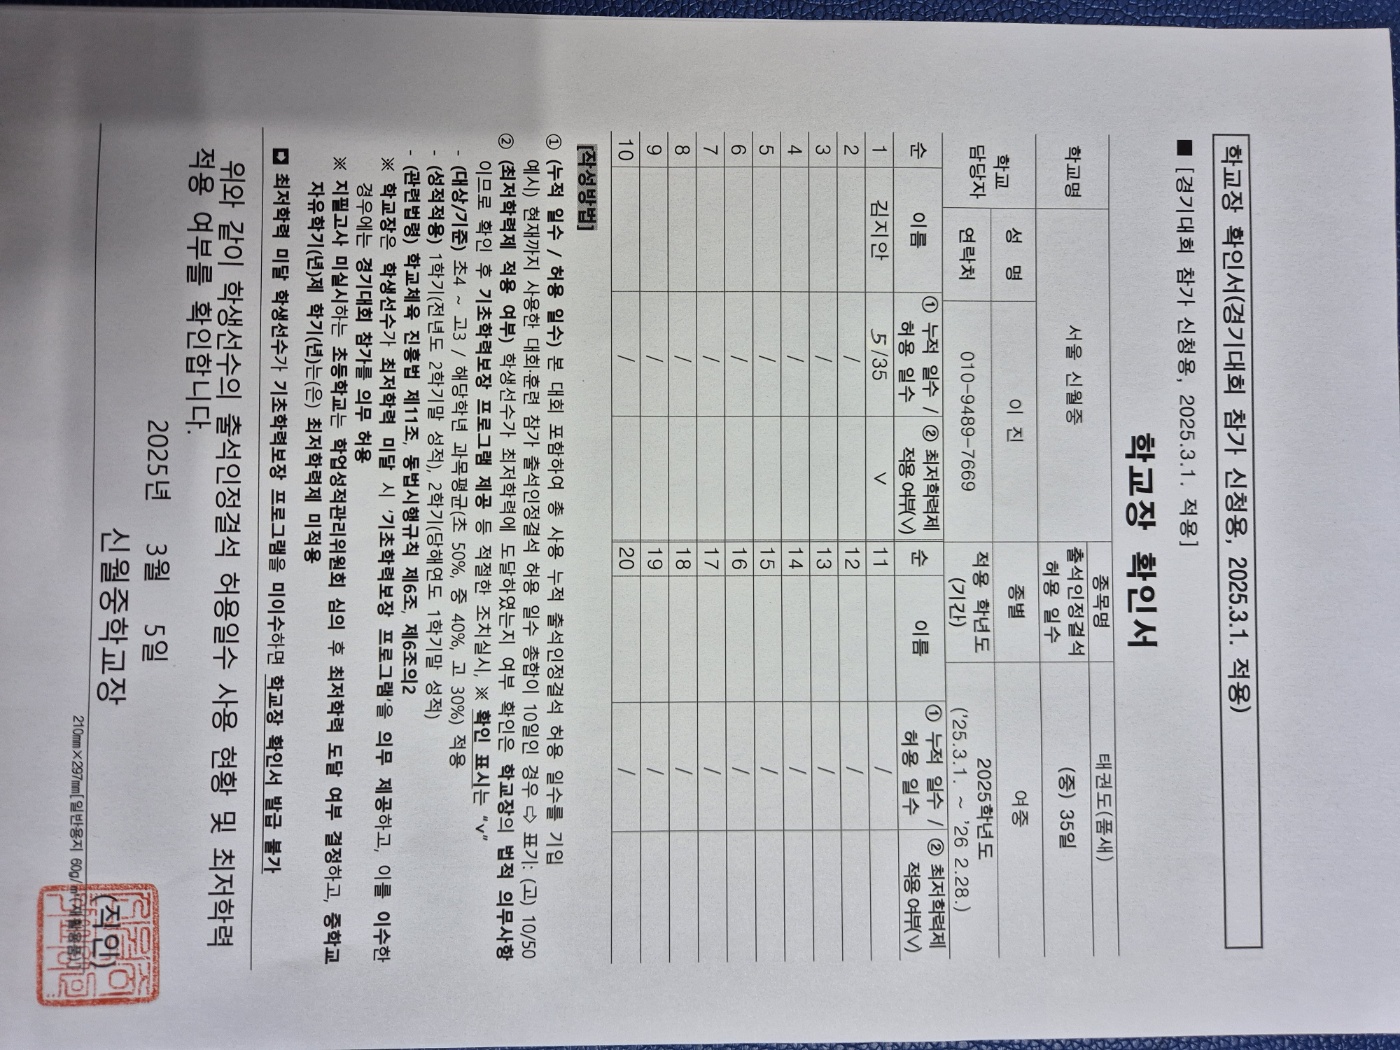 학교장 확인서(경기대회 참가 신청용, 2025.3.1. 적용)
■ [경기대회 참가 신청용, 2025.3.1. 적용]
학교장 확인서
학교명 서울 신월중 종목명 태권도(품새)
출석인정결석 허용 일수 (중) 35일
학교 담당자 성 명 이 진 종별 여중
연락처 010-9489-7669 적용 학년도 (기간) 2025학년도 ('25.3.1. ~ '26 2.28.)
순 이름 ① 누적 일수 / 허용 일수 ② 최저학력제 적용여부(V) 순 이름 ① 누적 일수 / 허용 일수 ② 최저학력제 적용여부(V)
1 김지안 5/35 V 11 /
2 / 12 /
3 / 13 /
4 / 14 /
5 / 15 /
6 / 16 /
7 / 17 /
8 / 18 /
9 / 19 /
10 / 20 /
[작성방법]
① (누적 일수 / 허용 일수) 본 대회 포함하여 총 사용 누적 출석인정결석 허용 일수를 기입
예시) 현재까지 사용한 대회·훈련 참가 출석인정결석 허용 일수 총합이 10일인 경우 ⇨ 표기: (고) 10/50
② (최저학력제 적용 여부) 학생선수가 최저학력에 도달하였는지 여부 확인은 학교장의 법적 의무사항
이므로 확인 후 기초학력보장 프로그램 제공 등 적절한 조치실시, ※ 확인 표시는 "v"
- (대상/기준) 초4 ~ 고3 / 해당학년 과목평균(초 50%, 중 40%, 고 30%) 적용
- (성적적용) 1학기(전년도 2학기말 성적), 2학기(당해연도 1학기말 성적)
- (관련법령) 학교체육 진흥법 제11조, 동법시행규칙 제6조, 제6조의2
※ 학교장은 학생선수가 최저학력 미달 시 '기초학력보장 프로그램'을 의무 제공하고, 이를 이수한
경우에는 경기대회 참가를 의무 허용
※ 지필고사 미실시하는 초등학교는 학업성적관리위원회 심의 후 최저학력 도달 여부 결정하고, 중학교
자유학기(년)제 학기(년)는(은) 최저학력제 미적용
➡ 최저학력 미달 학생선수가 기초학력보장 프로그램을 미이수하면 학교장 확인서 발급 불가
위와 같이 학생선수의 출석인정결석 허용일수 사용 현황 및 최저학력
적용 여부를 확인합니다.
2025년 3월 5일
신월중학교장 (직인)
210㎜×297㎜[일반용지 60g/㎡(재활용품)]